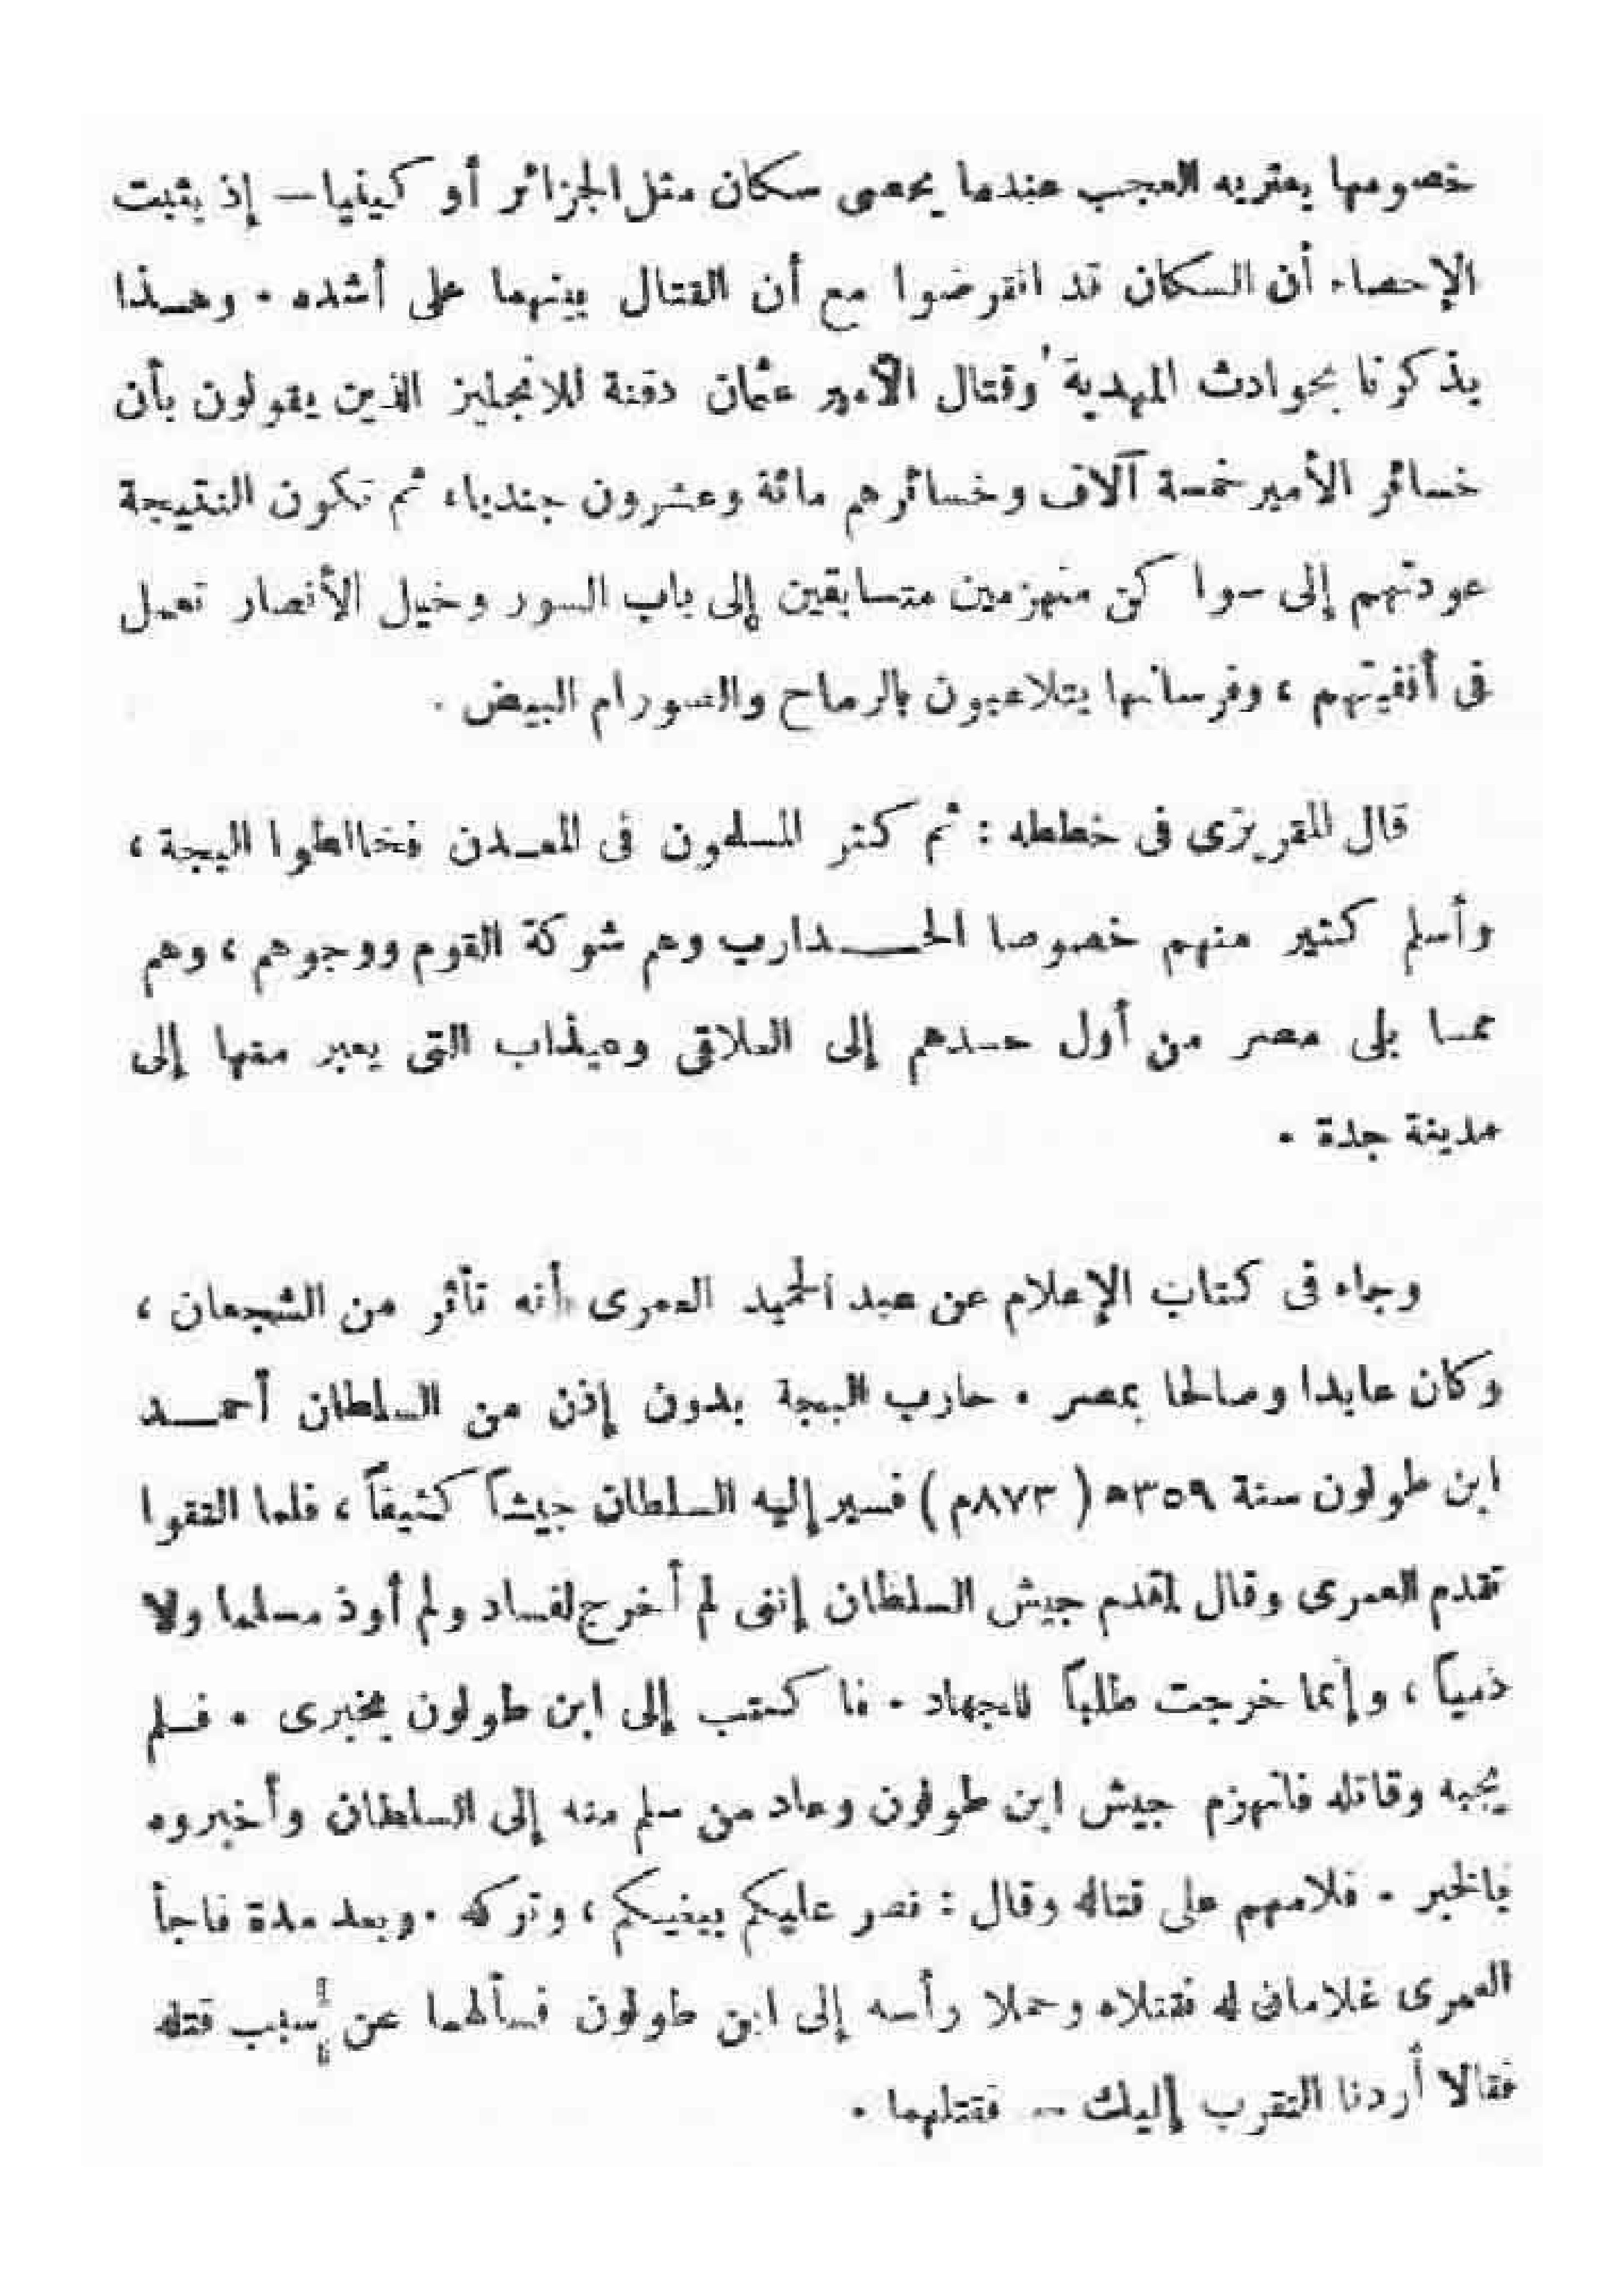 خصومها يعتريه العجب عندما يحصى سكان مثل الجزائر أو كينيا — إذ يثبت
الإحصاء أن السكان قد انقرضوا مع أن القتال بينهما على أشده . وهذا
يذكرنا بحوادث المهدية وقتال الأمير عثمان دقنة للانجليز الذين يقولون بأن
خسائر الأمير خمسة آلاف وخسائرهم مائة وعشرون جنديا، ثم تكون النتيجة
عودتهم إلى سواكن منهزمين متسابقين إلى باب السور وخيل الأنصار تعمل
فى أقفيتهم ، وفرسانها يتلاعبون بالرماح والصورام البيض .
قال المقريزى فى خططه : ثم كثر المسلمون فى المعدن فخالطوا البجة ،
وأسلم كثير منهم خصوصا الحدارب وهم شوكة القوم ووجوهم ، وهم
مما يلى مصر من أول حدهم إلى العلاقى وعيذاب التى يعبر منها إلى
مدينة جدة .
وجاء فى كتاب الإعلام عن عبد الحميد العمرى أنه تأثر من الشجعان ،
وكان عابدا وصالحا بمصر . حارب البجة بدون إذن من السلطان أحمد
ابن طولون سنة ٣٥٩ھ ( ٨٧٣م ) فسير إليه السلطان جيشاً كثيفاً ، فلما التقوا
تقدم العمرى وقال لمقدم جيش السلطان إننى لم أخرج لفساد ولم أوذ مسلما ولا
ذمياً ، وإنما خرجت طلباً للجهاد . فا كتب إلى ابن طولون بخبرى . فلم
يجبه وقاتله فانهزم جيش ابن طولون وعاد من سلم منه إلى السلطان وأخبروه
بالخبر . فلامهم على قتاله وقال : نصر عليكم ببغيكم ، وتركه . وبعد مدة فاجأ
العمرى غلامان له فقتلاه وحملا رأسه إلى ابن طولون فسألهما عن سبب قتله
فقالا أردنا التقرب إليك — فقتلهما .